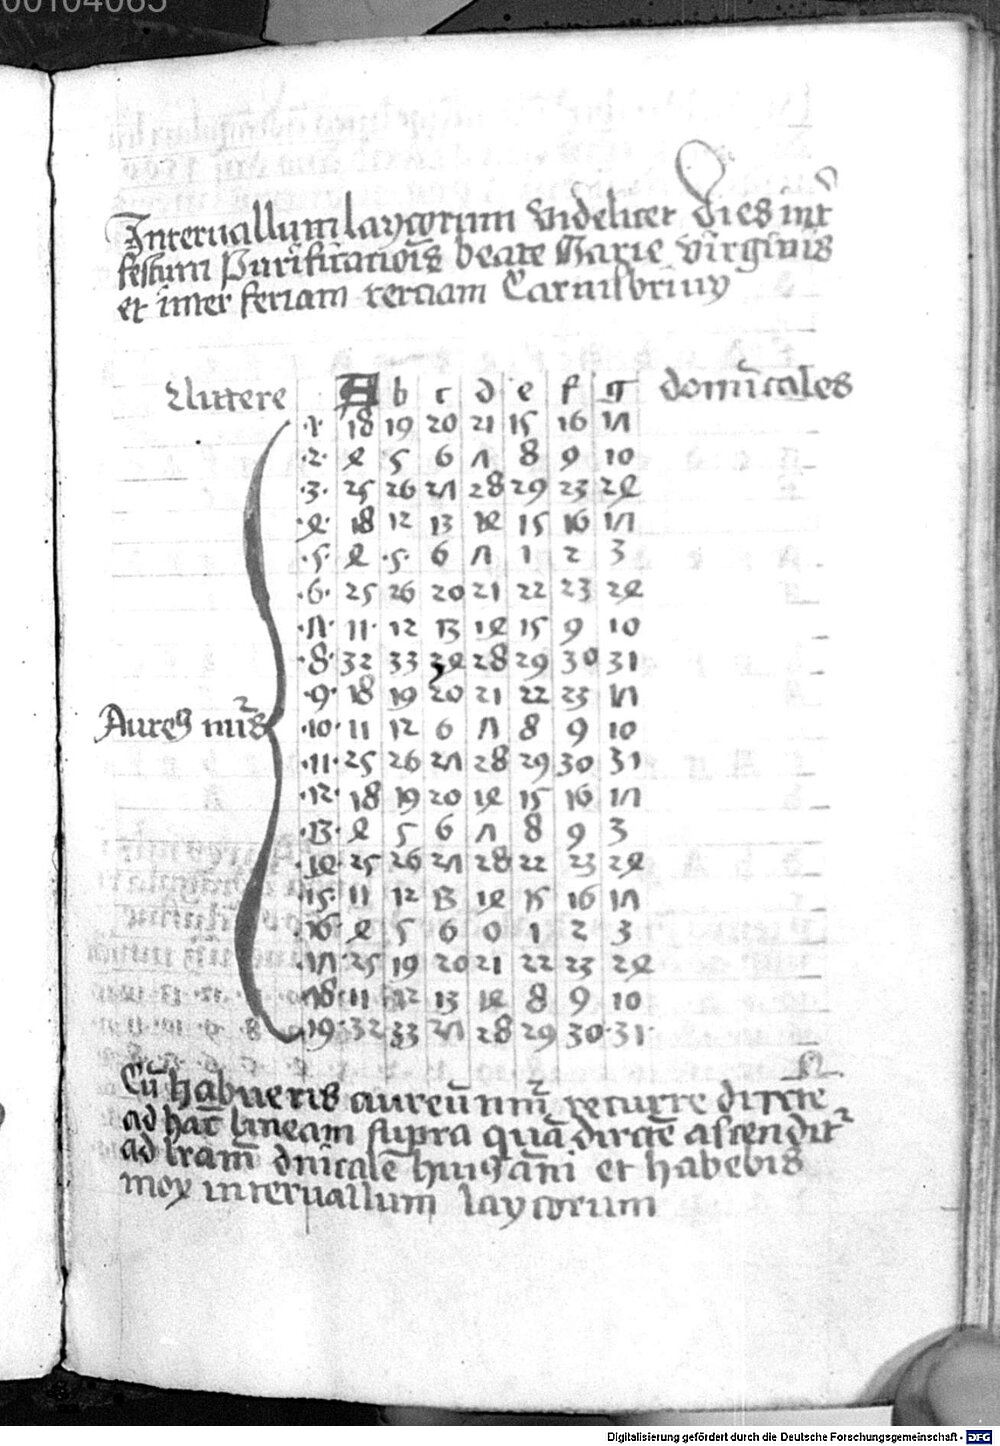 00104065
Interuallum laycorum videlicet dies int̄
festum Purificacioīs beate Marie virginis
et inter feriam terciam Carnisbriuy
Littere A b c d e f g domīcales
·1· 18 19 20 21 15 16 17
·2· 4 5 6 7 8 9 10
·3· 25 26 27 28 29 23 24
·4· 18 12 13 14 15 16 17
·5· 4 ·5· 6 7 1 2 3
·6· 25 26 20 21 22 23 24
·7· 11· 12 13 14 15 9 10
·8· 32 33 34 28 29 30 31
·9· 18 19 20 21 22 23 17
Aureꝰ nūs ·10· 11 12 6 7 8 9 10
·11· 25 26 27 28 29 30 31
·12· 18 19 20 14 15 16 17
·13· 4 5 6 7 8 9 3
·14· 25 26 27 28 22 23 24
·15· 11 12 13 14 15 16 17
·16· 4 5 6 0 1 2 3
·17· 25 19 20 21 22 23 24
·18· 11 12 13 14 8 9 10
·19· 32 33 27 28 29 30 31·
Cū habueris aureū nūm recurre directe
ad hāc lineam supra quā dircē ascendit᷑
ad lram̄ dnīcalē huiꝰ ānī et habebis
mox interuallum laycorum
Digitalisierung gefördert durch die Deutsche Forschungsgemeinschaft - DFG